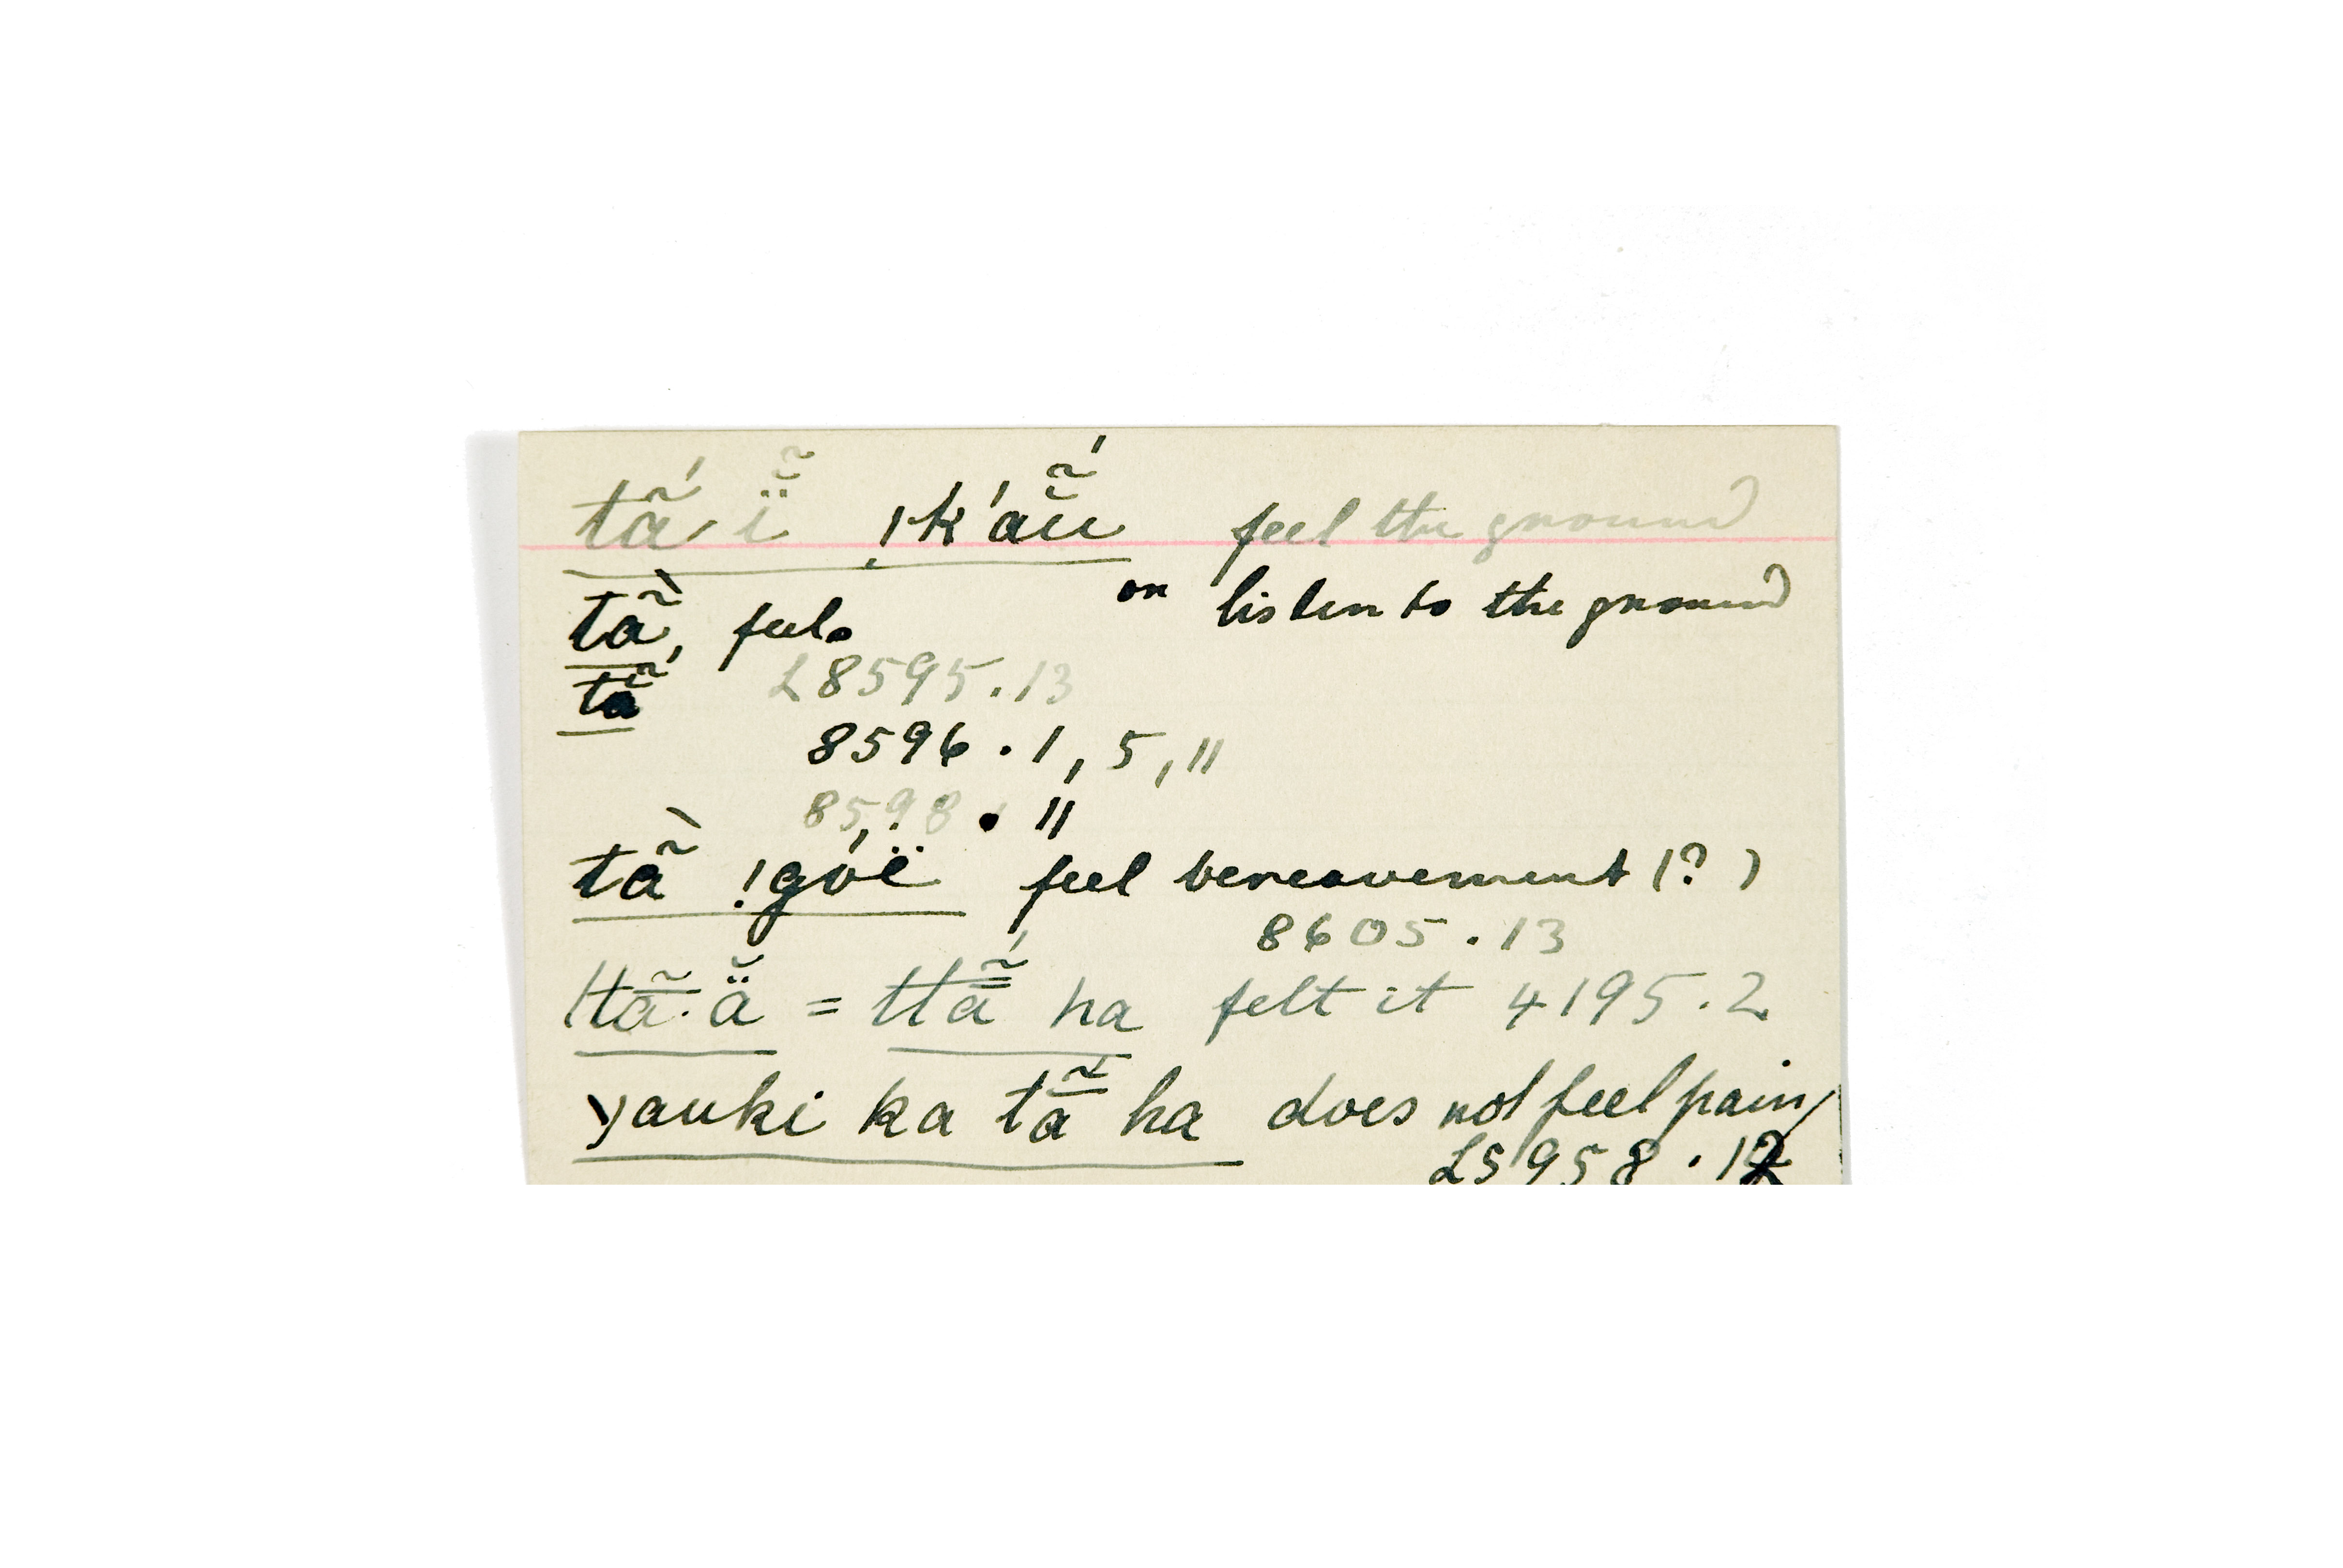 tã́ ï̃ !k'aũ̆́ feel the ground
tã̀, feel. or listen to the ground
tã́ L8595.13
8596.1, 5, 11
8598.11
tã̀ !góë feel bereavement (?)
8605.13
ttã̄.ä̆ = ttã̄́ ha felt it 4195.2
yauki ka tã̄ ha does not feel pain,
L5958.12